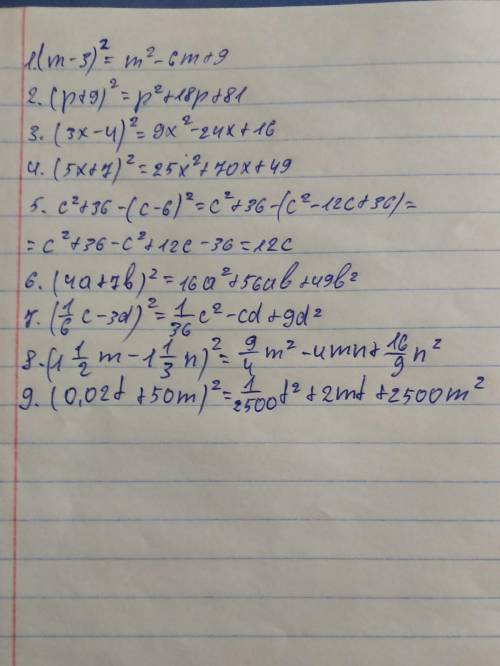 1.(m-3)²= m²-6m+9
2. (p+9)²=p²+18p+81
3. (3x-4)²=9x²-24x+16
4. (5x+7)²=25x²+70x+49
5. c²+36-(c-6)²=c²+36-(c²-12c+36)=
=c²+36-c²+12c-36=12c
6. (4a+7b)²=16a²+56ab+49b²
7. (1/6 c-3d)²=1/36 c²-cd+9d²
8.(1 1/2 m-1 1/3 n)²=9/4 m²-4mn+16/9 n²
9. (0,02t+50m)²=1/2500 t²+2mt+2500m²